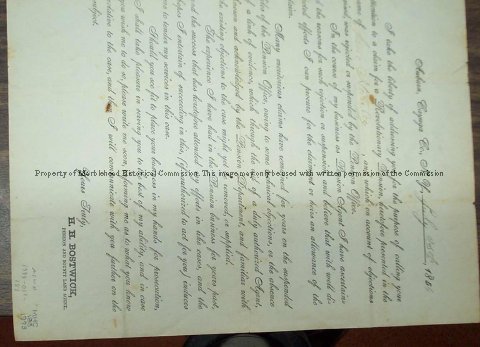 Auburn, Cayuga Co., N. Y.,
I take the liberty of addressing you for the purpose of calling your
attention to a claim for a Revolutionary Pension, heretofore presented in the
name of
and which on account of objections
was rejected or suspended by the Pension Office.
In the course of my business as Pension Agent I have ascertained
the reasons for such rejection or suspension, and believe that with well di-
rected efforts I can procure for the claimant or heirs an allowance of the
claim.
Many meritorious claims have remained for years on the suspended
files of the Pension Office, owing to some technical objections, or the absence
or a lack of evidence, which through the aid of a duly authorized Agent,
known and acknowledged by the Pension Department, and familiar with
existing objections to the case might yet be removed, or supplied.
The experience I have had in the Pension business for years past,
and the success that has heretofore attended my efforts in like cases, and the
hopes I entertain of succeeding in this (if authorized to act for you) induces
me to tender my services in this case.
Should you see fit to place your business in my hands for prosecution,
I shall take pleasure in serving you to the best of my ability, and in case
you wish me to do so, please write me soon, informing me as to what you know
in relation to the case, and then I will communicate with you further on the
subject.
Yours Truly,
H. H. BOSTWICK,
PENSION AND BOUNTY LAND AGENT.
Property of Marblehead Historical Commission. This image may not be used without permission of the Commission